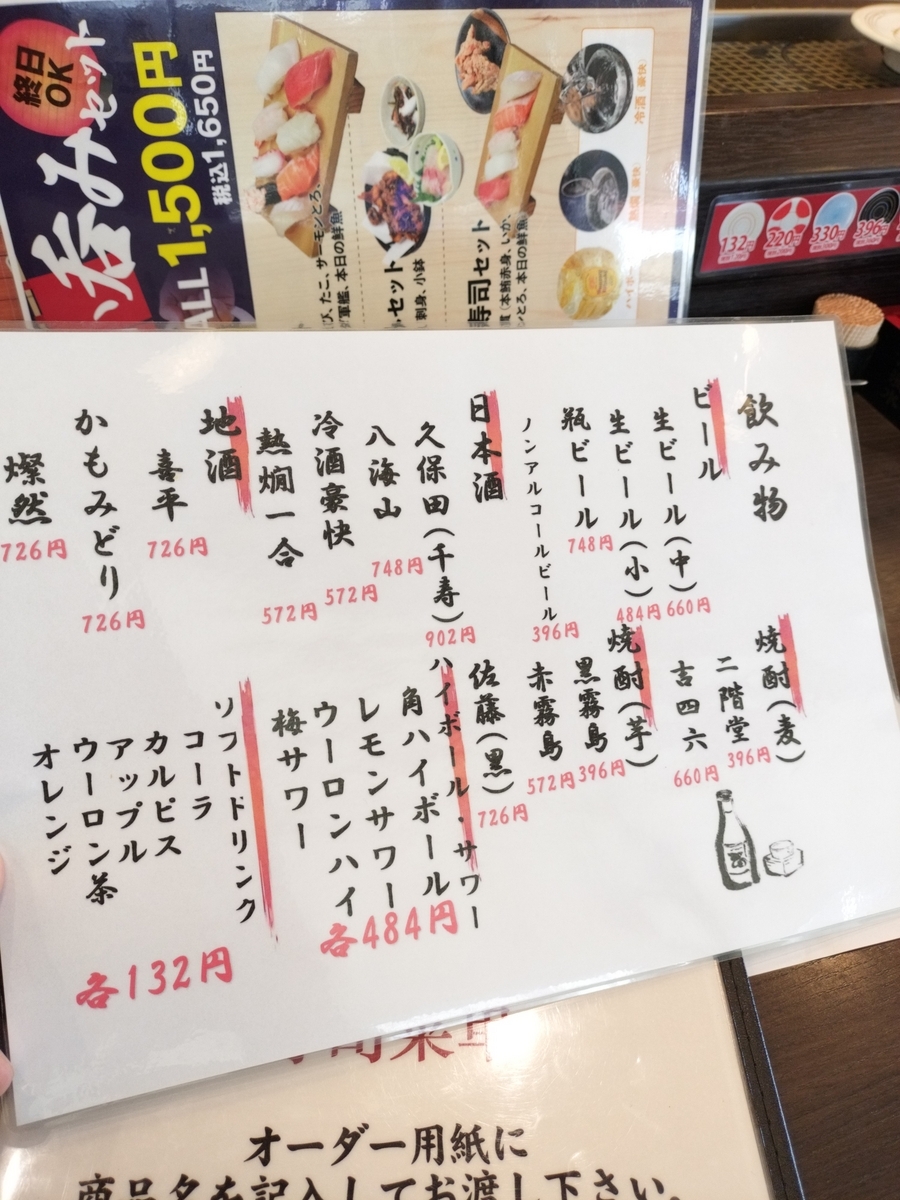 終日
OK
呑みセット
ALL 1,500円
税込1,650円
び、たこ、サーモンとろ、
軍艦、本日の鮮魚
セット
刺身、小鉢
寿司セット
貫(本鮪赤身、いか、
ンとろ、本日の鮮魚
冷酒(豪快)
熱燗(豪快)
ハイボー
132円
220円
330円
396円
飲み物
ビール
生ビール(中)
660円
生ビール(小)
484円
瓶ビール
748円
ノンアルコールビール
396円
日本酒
久保田(千寿)
902円
八海山
748円
冷酒豪快
572円
熱燗一合
572円
地酒
喜平
726円
かもみどり
726円
燦然
726円
焼酎(麦)
二階堂
396円
吉四六
660円
焼酎(芋)
黒霧島
396円
赤霧島
572円
佐藤(黒)
726円
ハイボール・サワー
角ハイボール
レモンサワー
ウーロンハイ
梅サワー
各484円
ソフトドリンク
コーラ
カルピス
アップル
ウーロン茶
オレンジ
各132円
オーダー用紙に
商品名を記入してお渡し下さい。